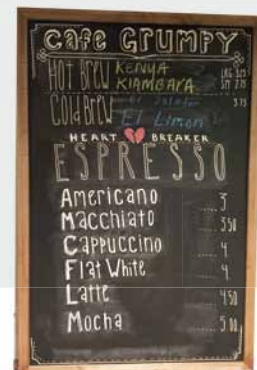 Cafe GRUMPY
HOT BREW KENYA
KIAMBARA
LRG 3.25
SM 2.75
Cold BREW El Salvador
El Limon
3.75
HEART BREAKER
ESPRESSO
Americano ..... 3
Macchiato ..... 3.50
Cappuccino ..... 4
Flat White ..... 4
Latte ..... 4.50
Mocha ..... 5.00